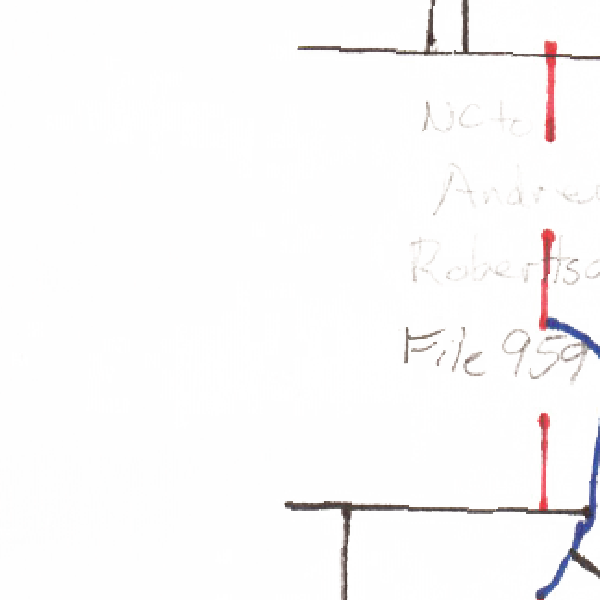 NCto
Andre
Roberts
File 959